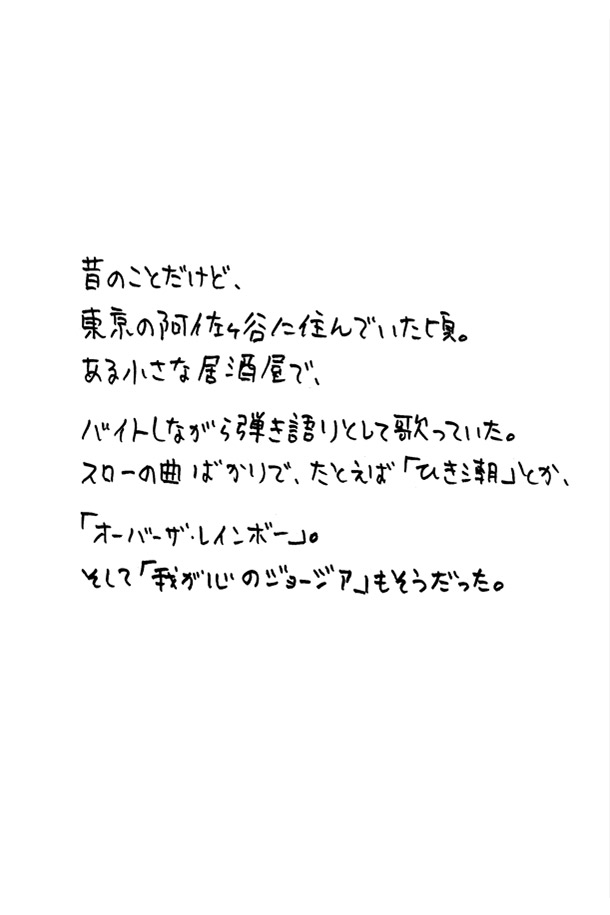 昔のことだけど、
東京の阿佐ヶ谷に住んでいた頃。
ある小さな居酒屋で、
バイトしながら弾き語りとして歌っていた。
スローの曲ばかりで、たとえば「ひき潮」とか、
「オーバー・ザ・レインボー」。
そして「我が心のジョージア」もそうだった。